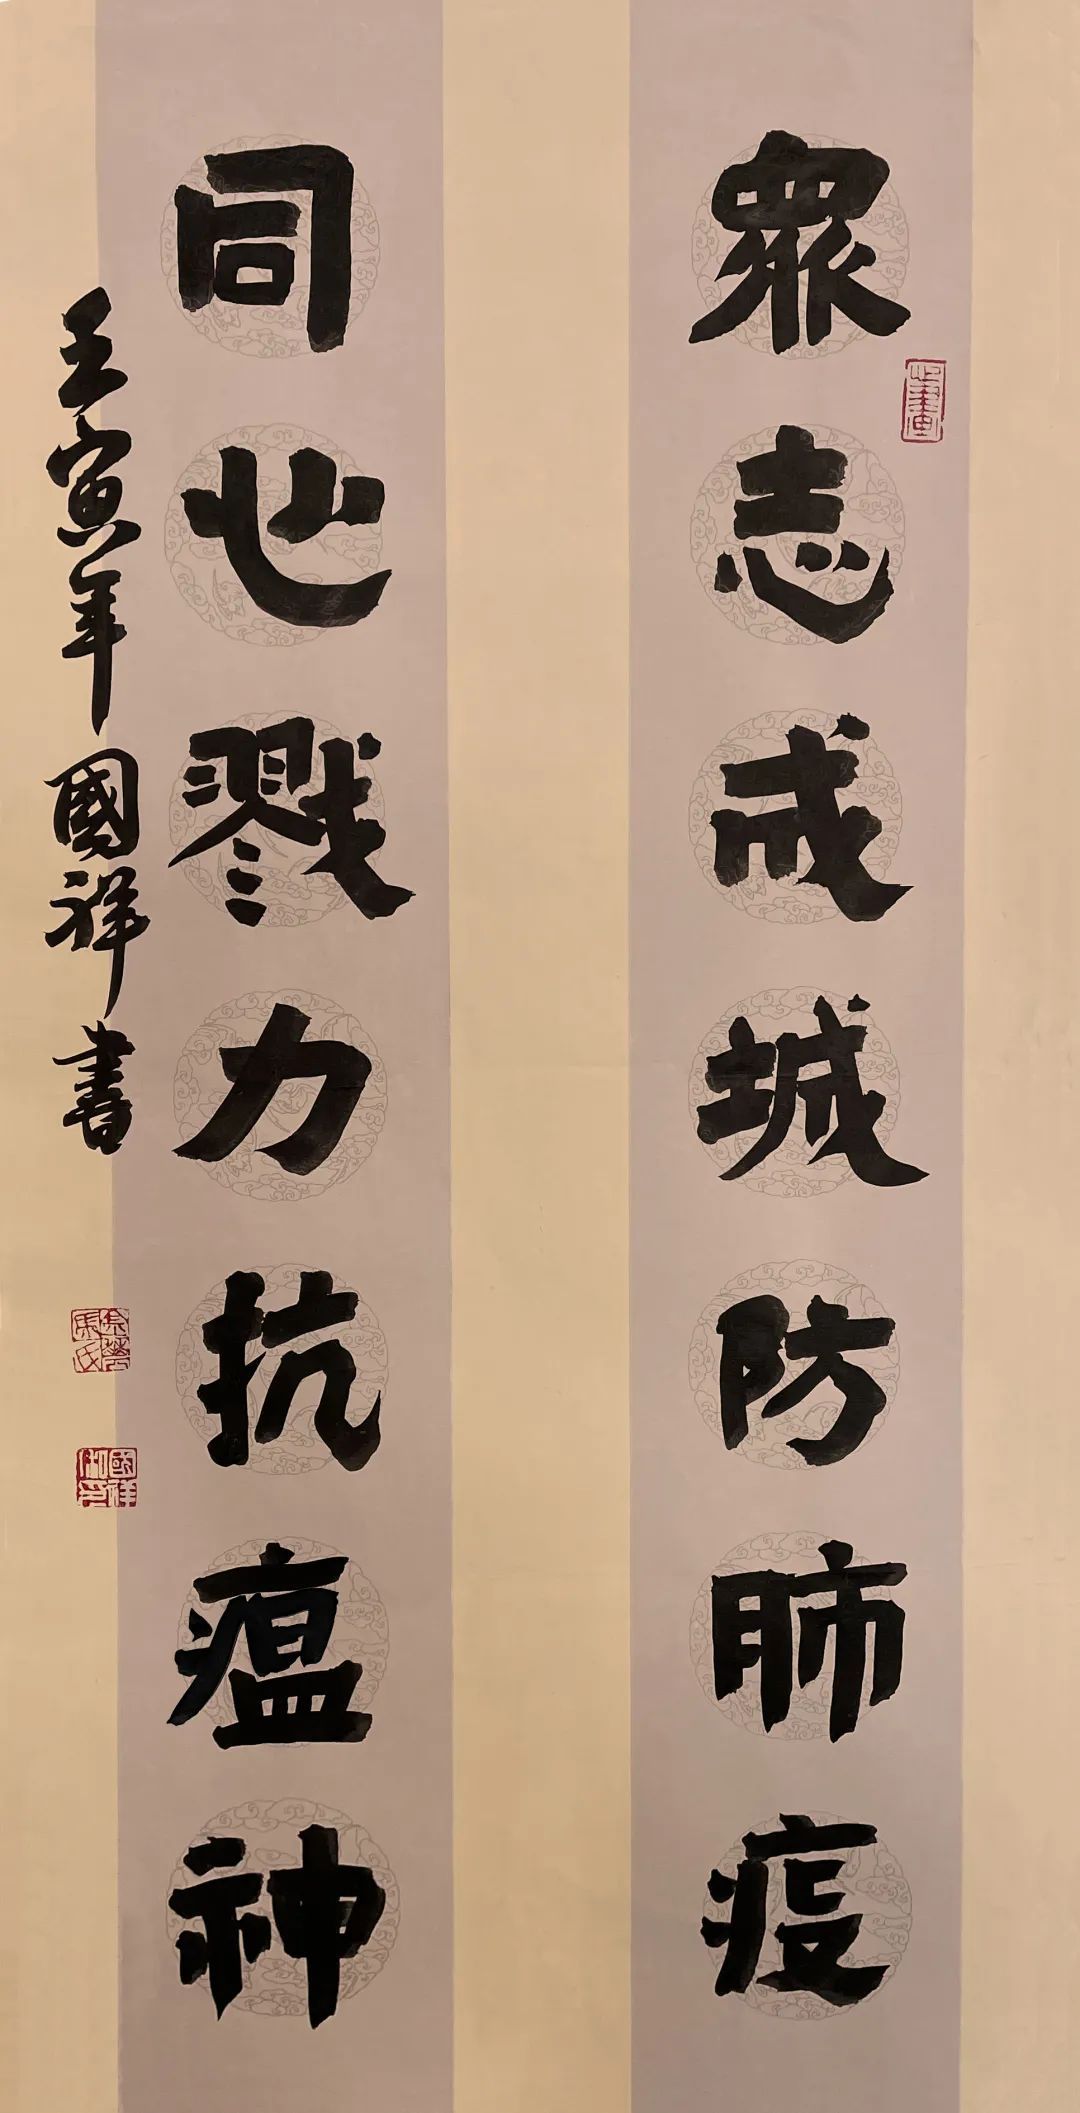 眾志成城防肺疫
同心戮力抗瘟神
壬寅年國祥書